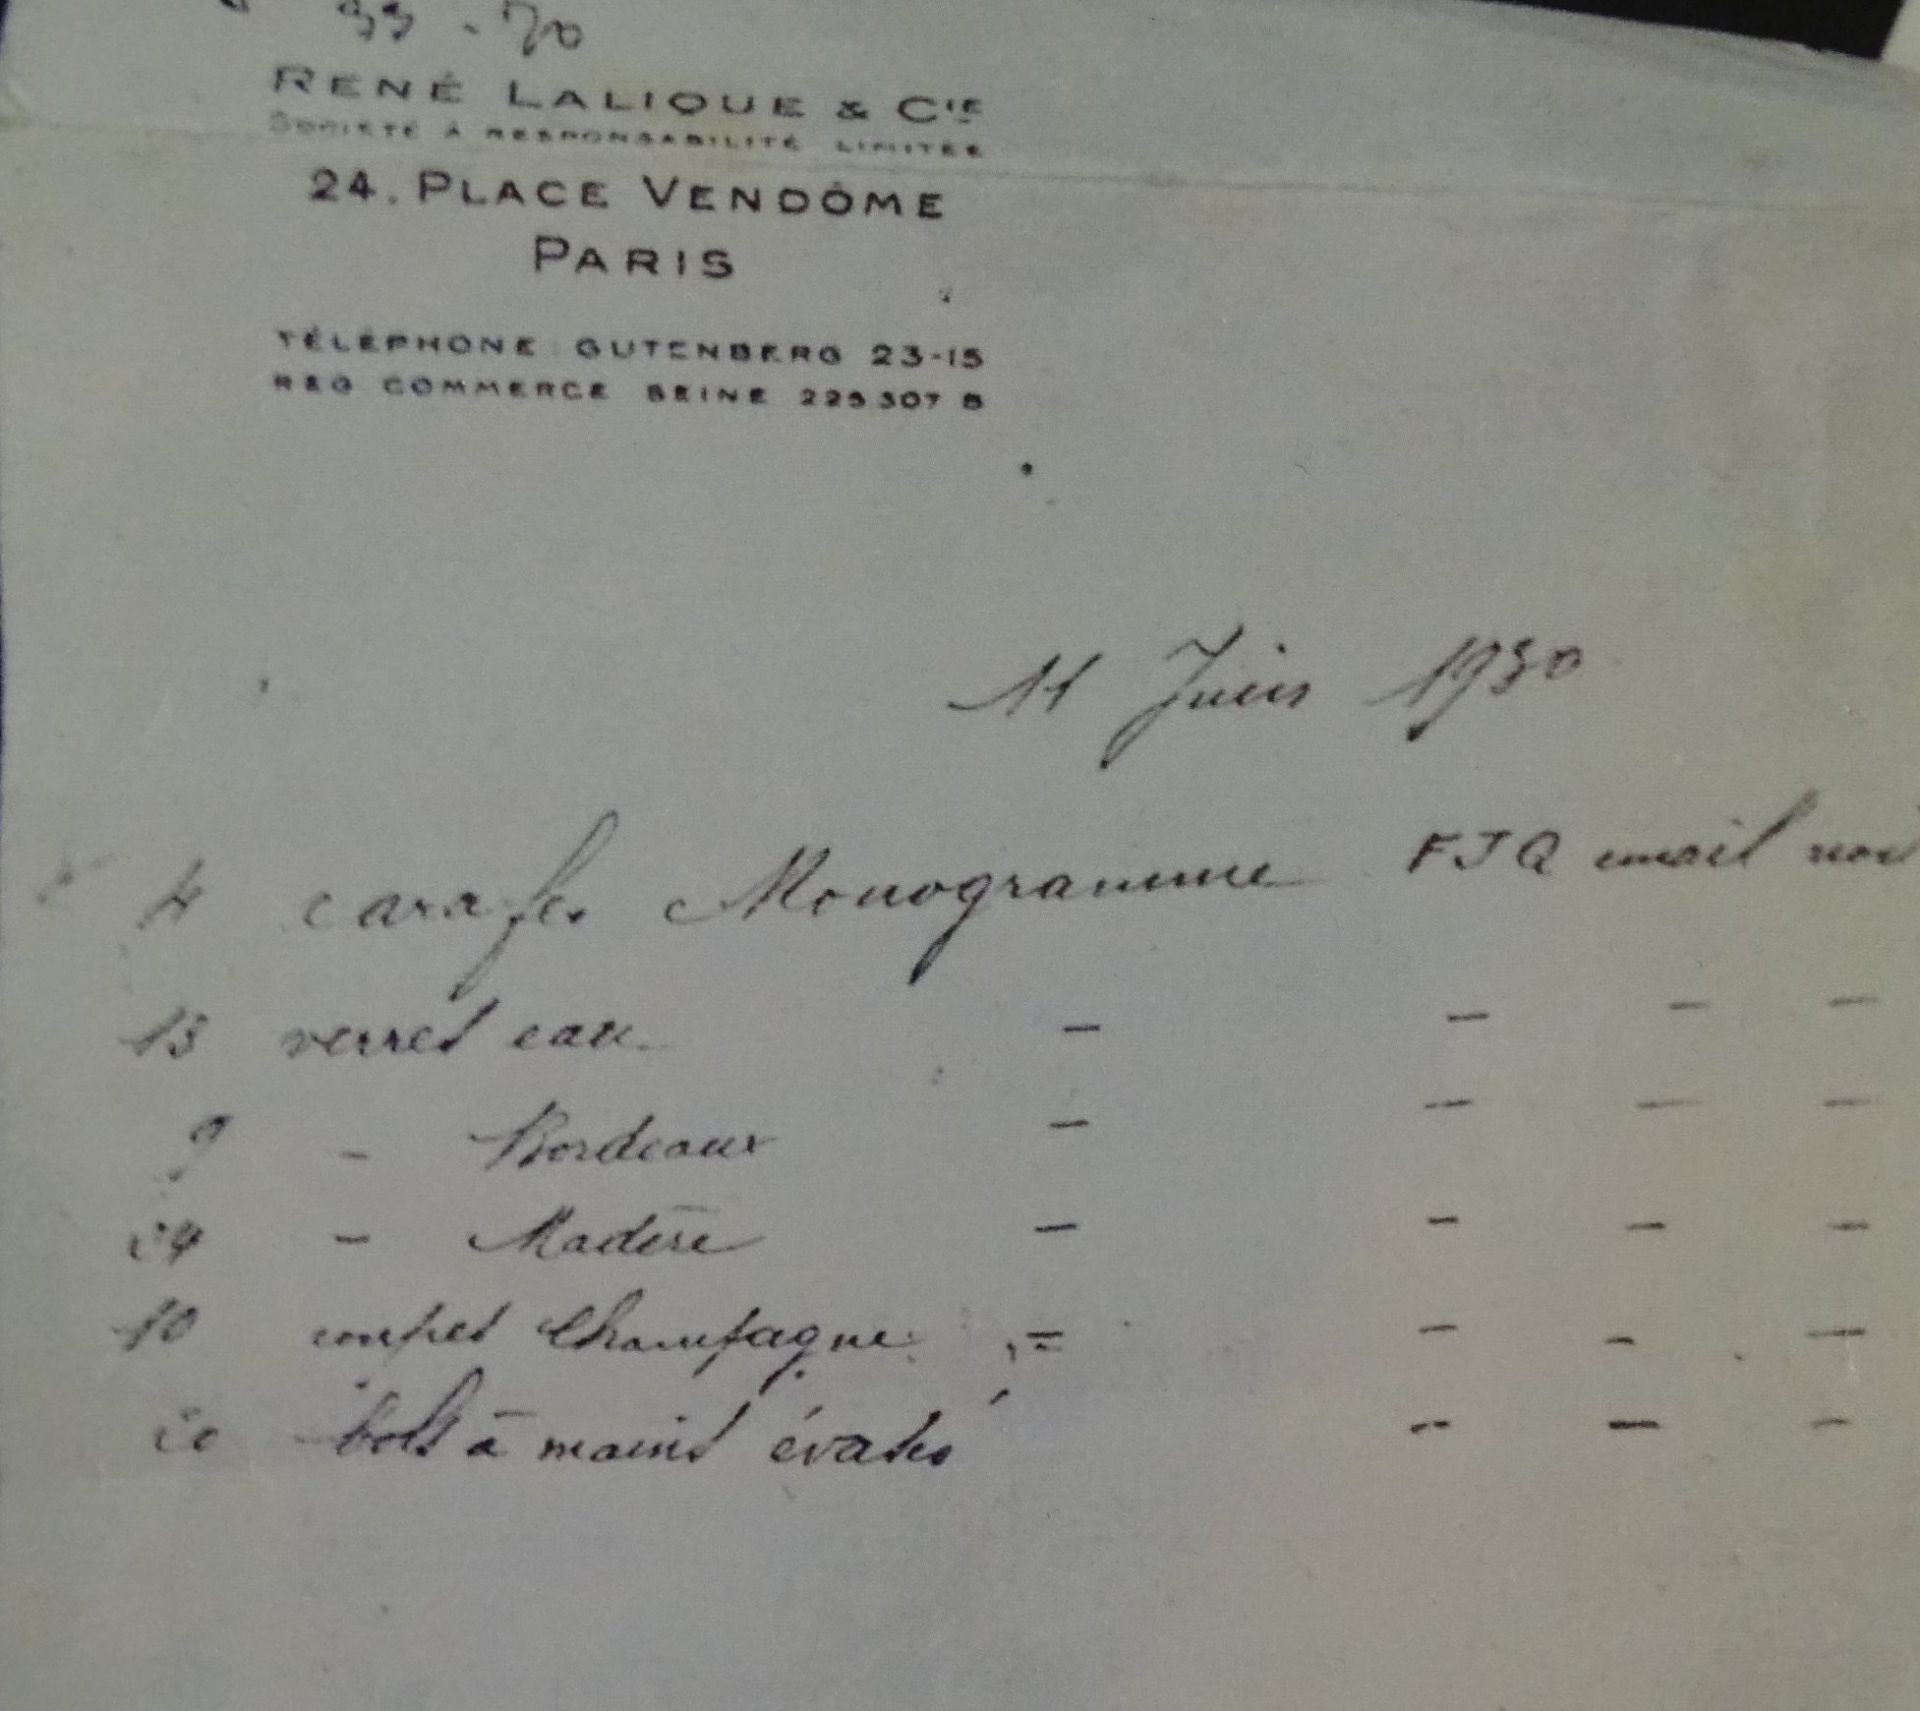 33 - 70
RENÉ LALIQUE & CIE
SOCIÉTÉ A RESPONSABILITÉ LIMITÉE
24, PLACE VENDÔME
PARIS
TÉLÉPHONE GUTENBERG 23-15
REG COMMERCE SEINE 225307 B
11 Juin 1930
4 carafes Monogramme FJQ email noir
13 verres eau - - - -
9 - Bordeaux - - - -
24 - Madère - - - -
10 coupes Champagne - - - -
20 bols à mains évasés - - -